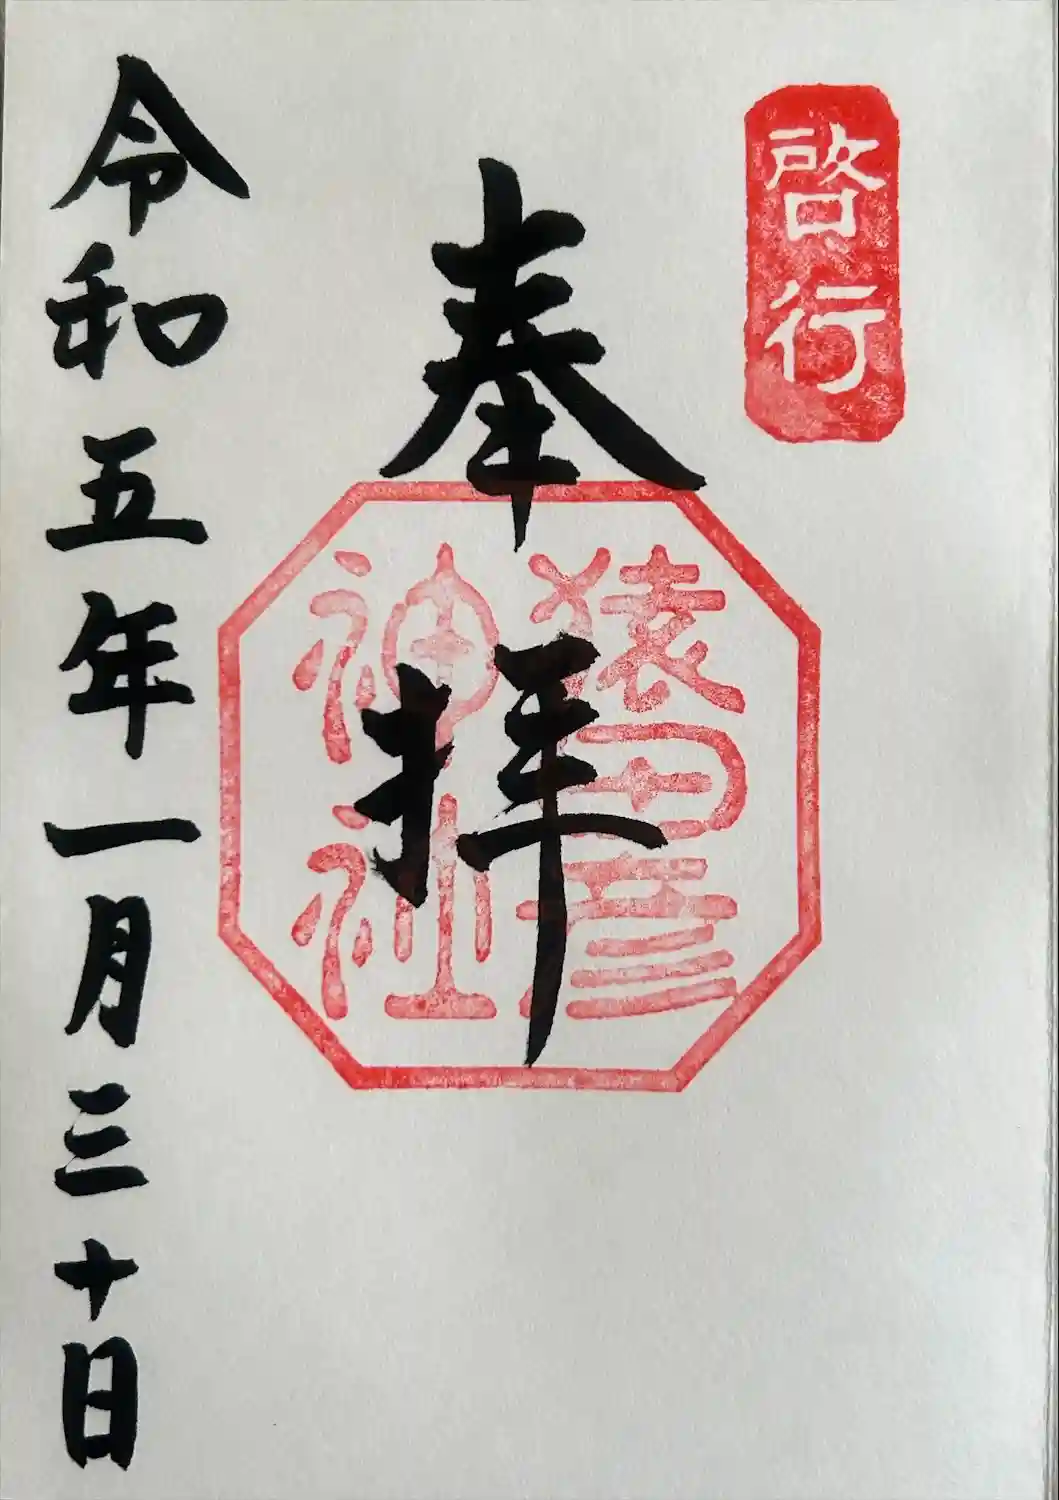 啓行
奉拝
猿田彦
神社
令和五年一月三十日